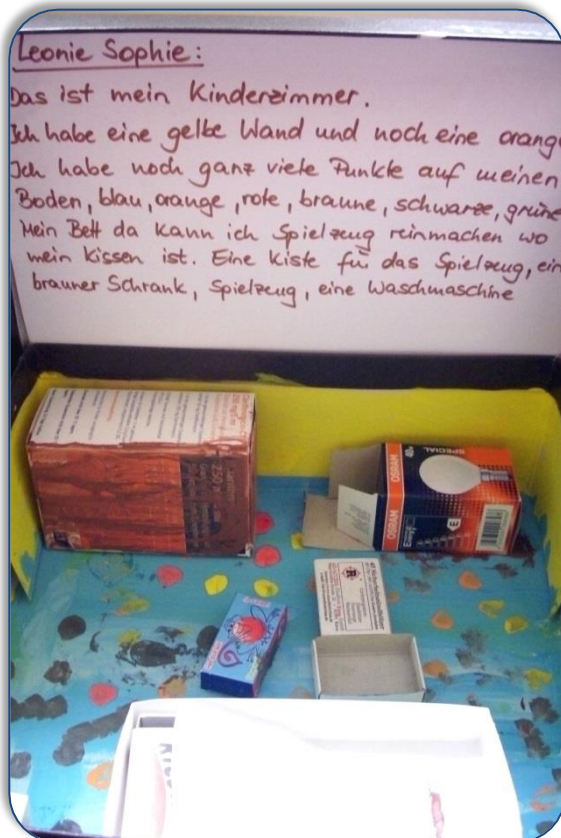 Leonie Sophie:
Das ist mein Kinderzimmer.
Ich habe eine gelbe Wand und noch eine orange
Ich habe noch ganz viele Punkte auf meinen
Boden, blau, orange, rote, braune, schwarze, grüne
Mein Bett da kann ich Spielzeug reinmachen wo
mein Kissen ist. Eine Kiste für das Spielzeug, ein
brauner Schrank, Spielzeug, eine Waschmaschine
250
OSRAM
SPECIAL
OSRAM
E